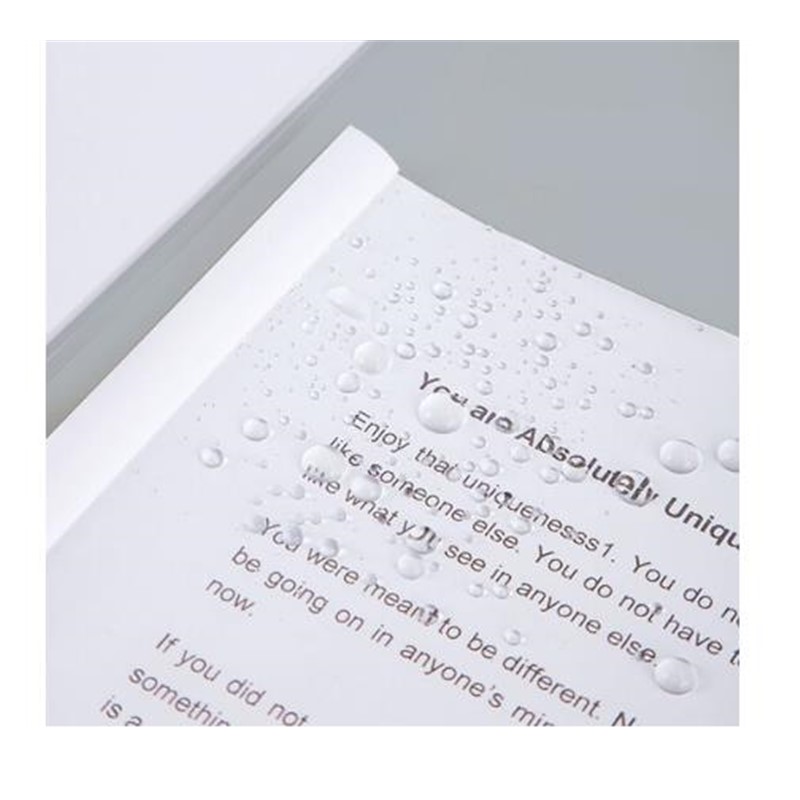 You are Absolutely Uniqu
Enjoy that uniquenesss1. You do no
like someone else. You do not have t
like what you see in anyone else.
You were meant to be different. N
be going on in anyone's min
now.
If you did not
somethin
is a